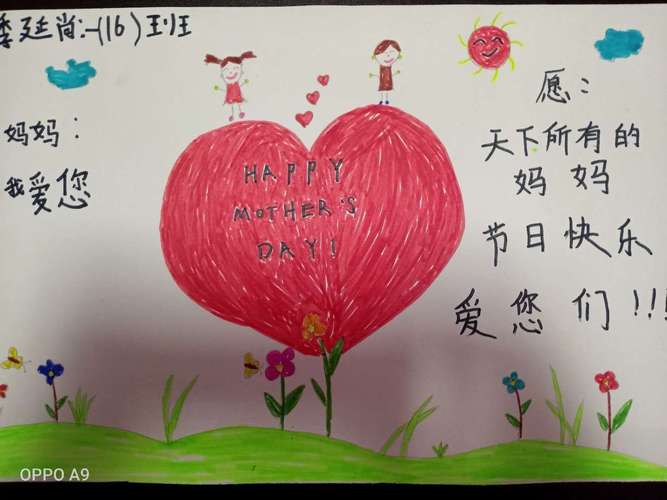 季延尚:一(16)班
妈妈:
我爱您
HAPPY
MOTHER'S
DAY!
愿:
天下所有的
妈妈
节日快乐
爱您们!!!
OPPO A9